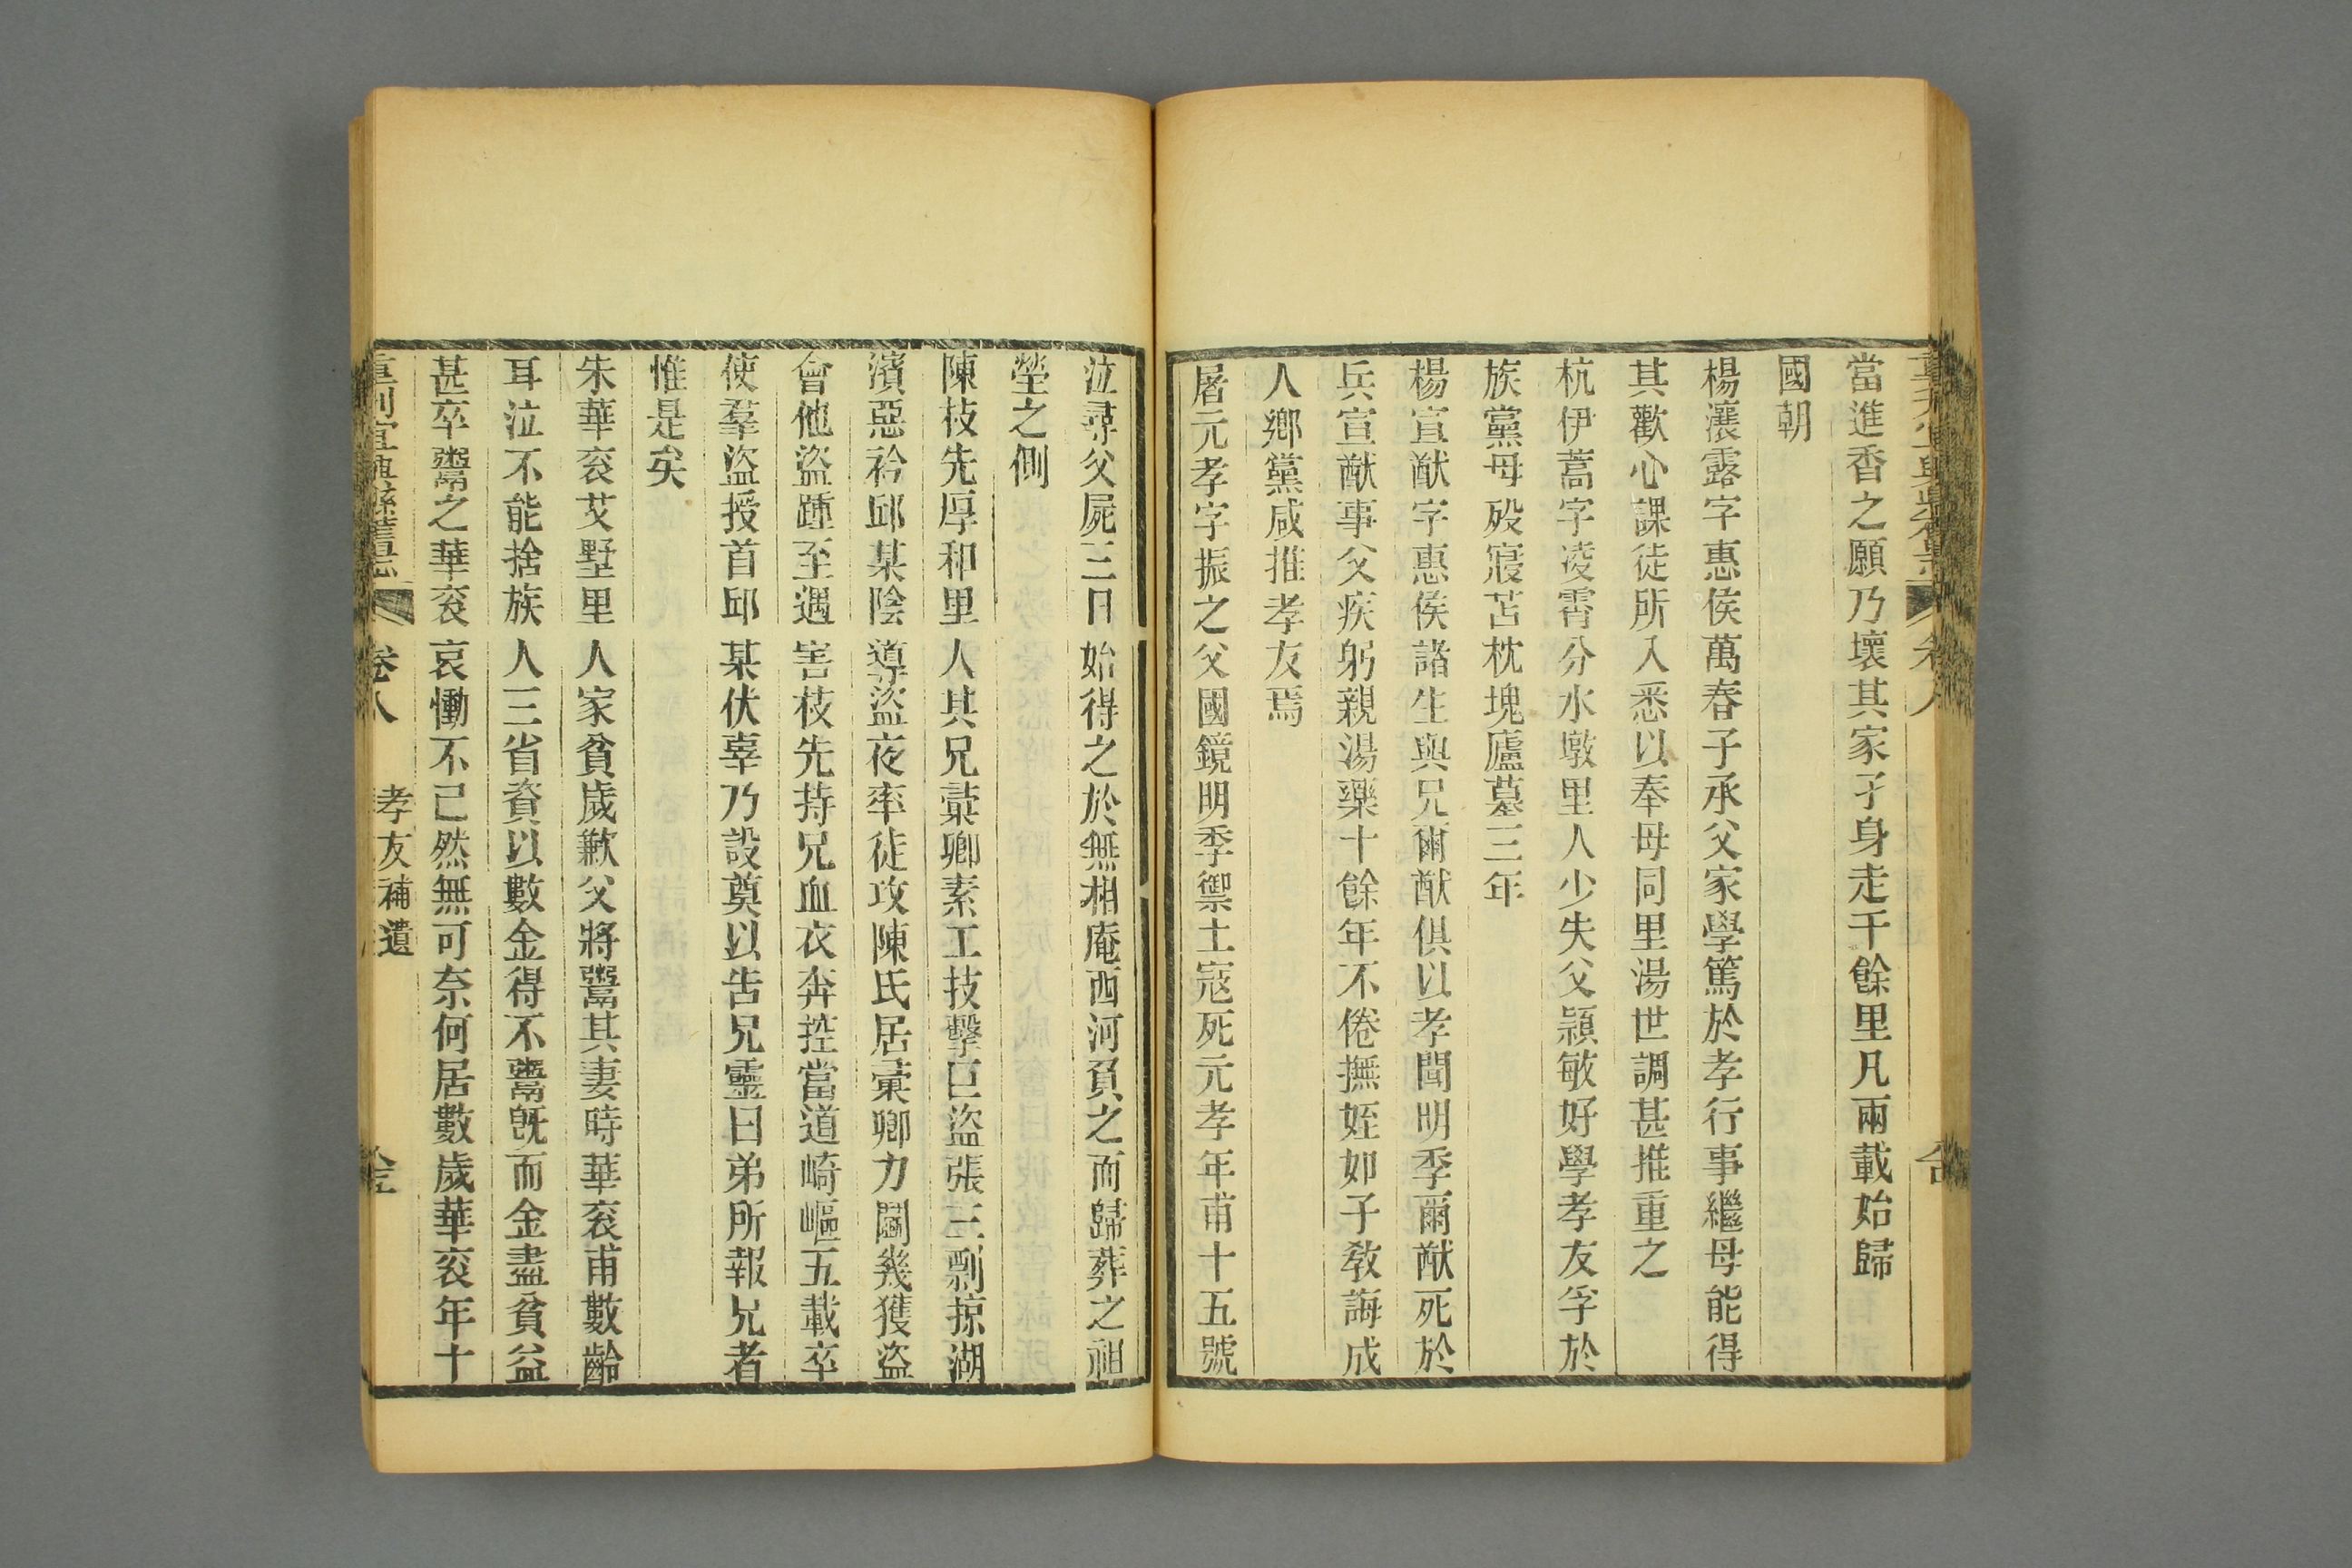 當進香之願乃壞其家孑身走千餘里凡兩載始歸
國朝
楊瀼露字惠侯萬春子承父家學篤於孝行事繼母能得
其歡心課徒所入悉以奉母同里湯世調甚推重之
杭伊蒿字凌霄分水墩里人少失父穎敏好學孝友孚於
族黨母歿寢苫枕塊廬墓三年
楊宣猷字惠侯諸生與兄爾猷俱以孝聞明季爾猷死於
兵宣猷事父疾躬親湯藥十餘年不倦撫姪如子教誨成
人鄉黨咸推孝友焉
屠元孝字振之父國鏡明季禦土寇死元孝年甫十五號
泣尋父屍三日始得之於無相庵西河負之而歸葬之祖
塋之側
陳枝先厚和里人其兄蘂卿素工技擊巨盜張三剽掠湖
濱惡衿邱某陰導盜夜率徒攻陳氏居蘂卿力鬬幾獲盜
會他盜踵至遇害枝先持兄血衣奔控當道崎嶇五載卒
使羣盜授首邱某伏辜乃設奠以告兄靈曰弟所報兄者
惟是矣
朱華袞艾墅里人家貧歲歉父將鬻其妻時華袞甫數齡
耳泣不能捨族人三省資以數金得不鬻旣而金盡貧益
甚卒鬻之華袞哀慟不已然無可奈何居數歲華袞年十
重刊宜興縣舊志 卷八 孝友補遺